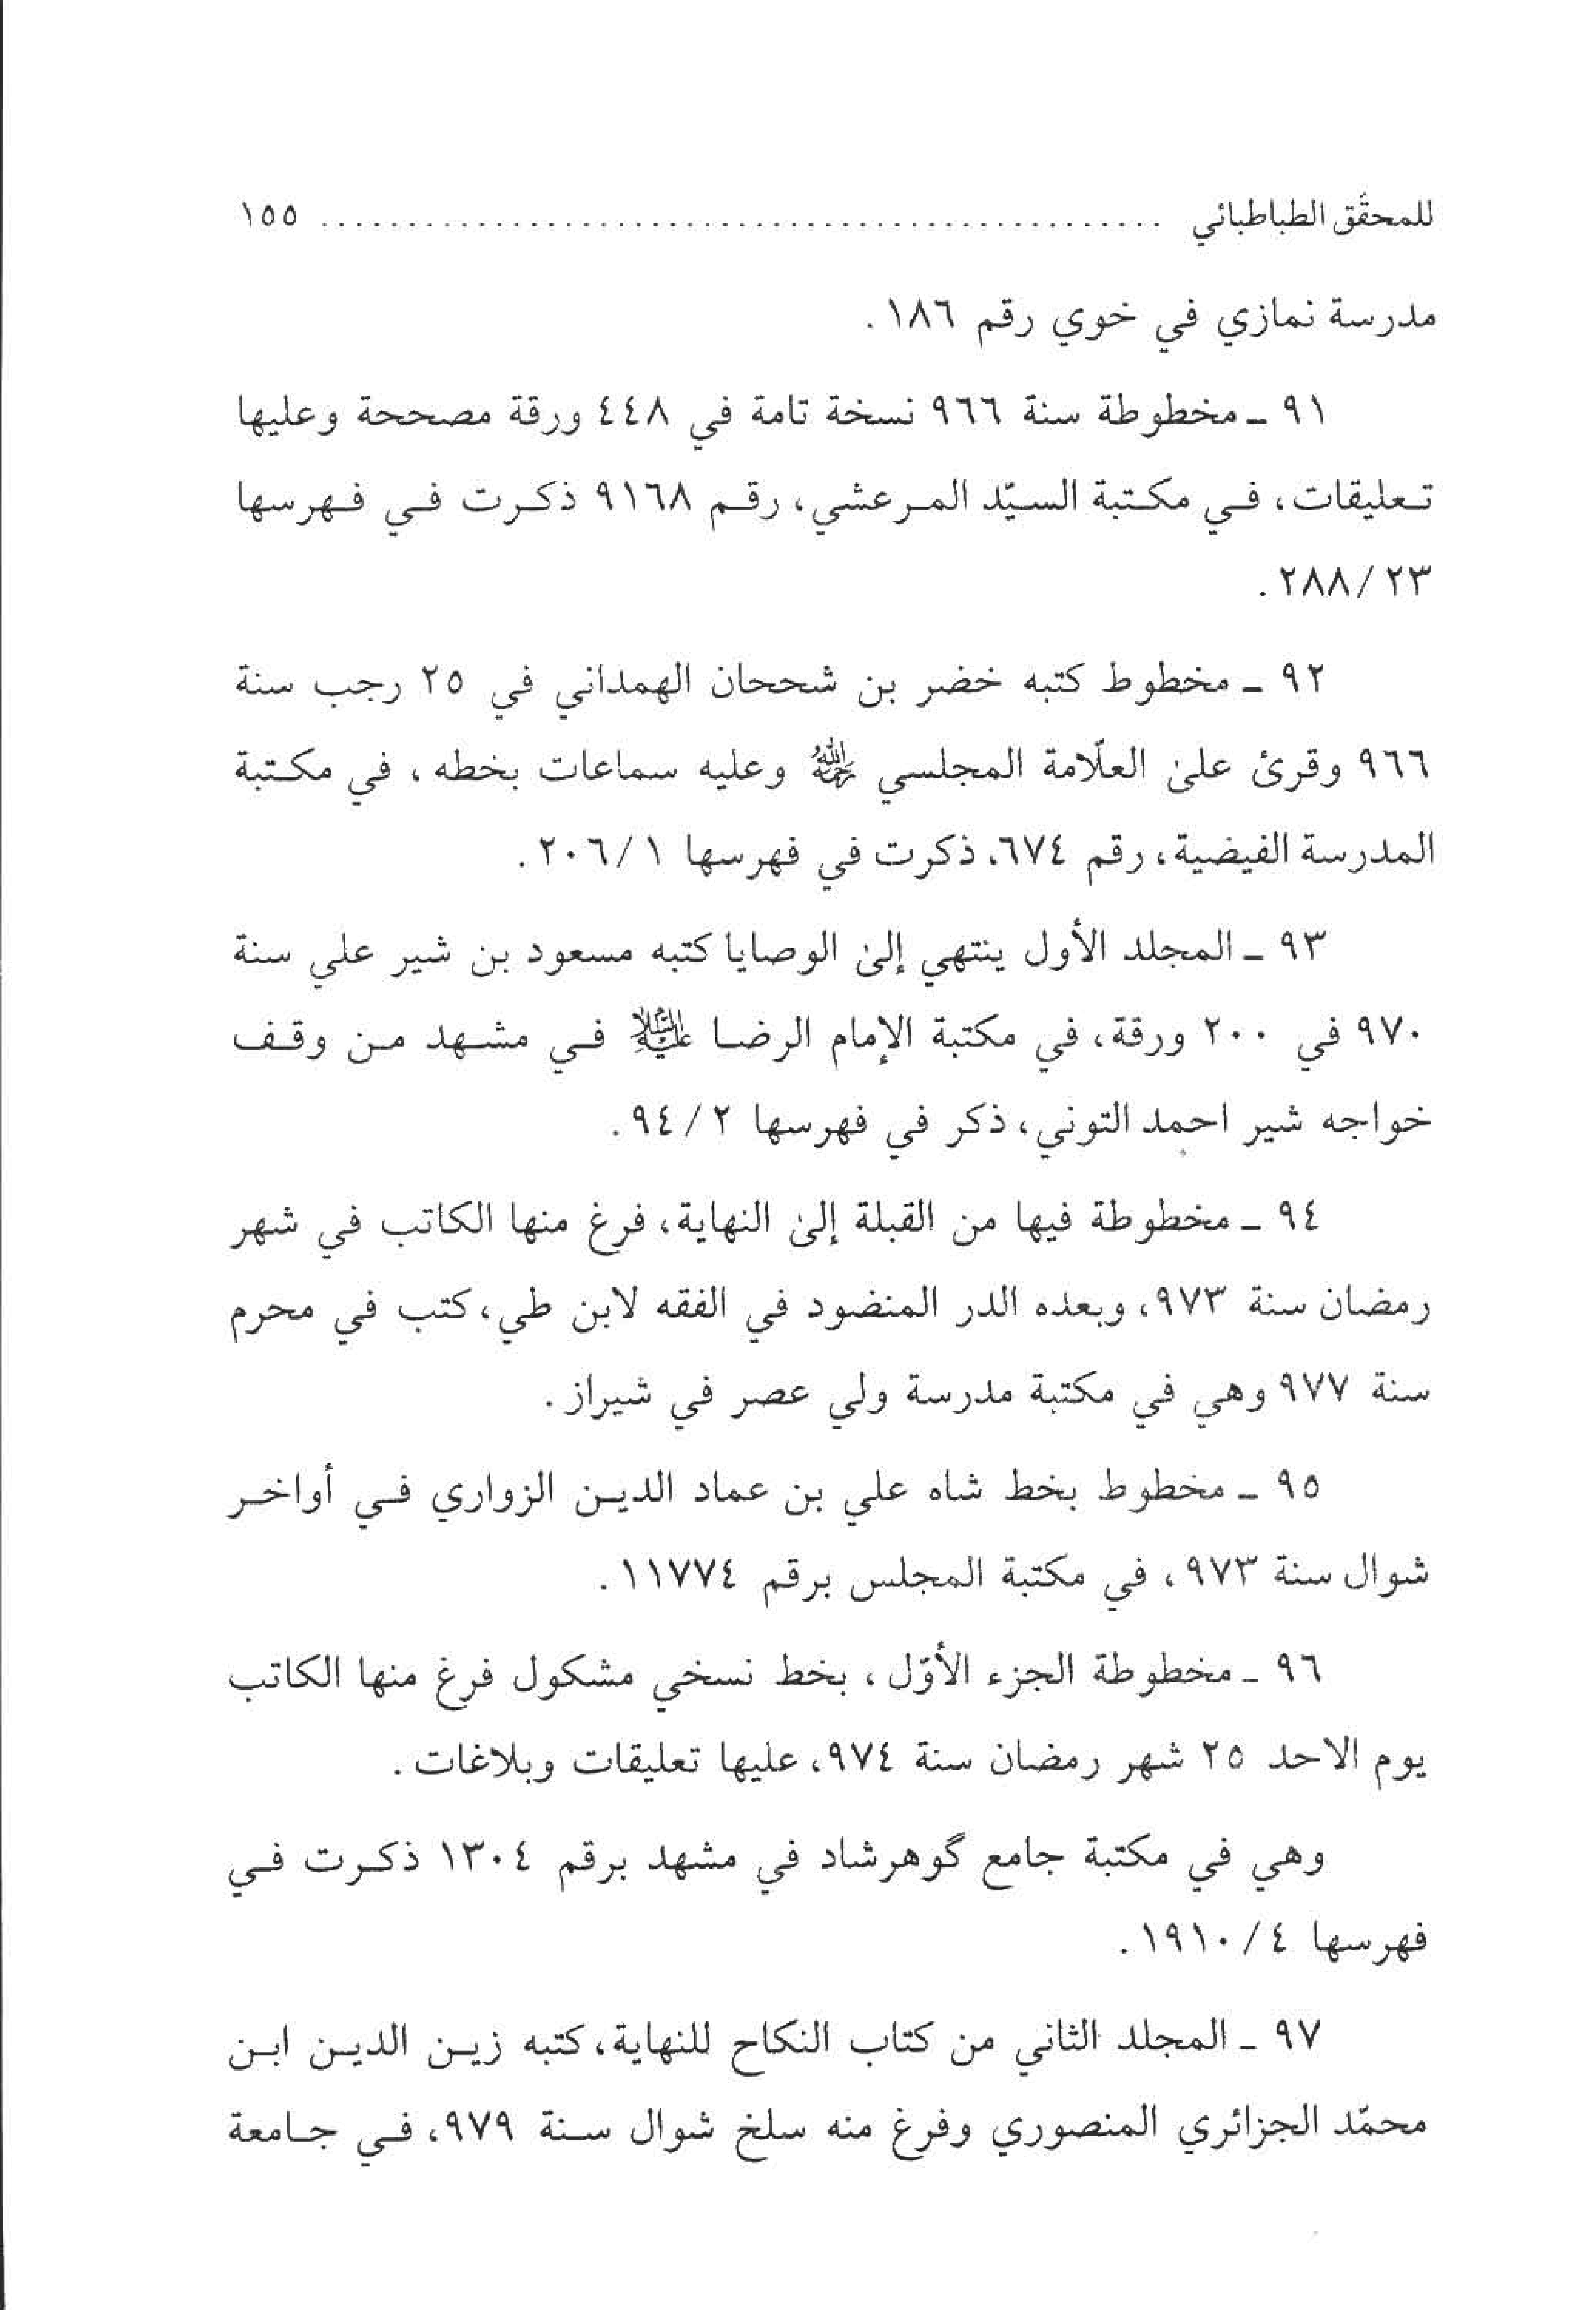 للمحقّق الطباطبائي ................................................ ١٥٥
مدرسة نمازي في خوي رقم ١٨٦ .
٩١ ـ مخطوطة سنة ٩٦٦ نسخة تامة في ٤٤٨ ورقة مصححة وعليها
تـعليقات، فـي مكـتبة السـيّد المـرعشي، رقـم ٩١٦٨ ذكـرت فـي فـهرسها
٢٨٨/٢٣ .
٩٢ ـ مخطوط كتبه خضر بن شححان الهمداني في ٢٥ رجب سنة
٩٦٦ وقرئ علىٰ العلّامة المجلسي ﵀ وعليه سماعات بخطه ، في مكـتبة
المدرسة الفيضية، رقم ٦٧٤، ذكرت في فهرسها ٢٠٦/١ .
٩٣ ـ المجلد الأول ينتهي إلىٰ الوصايا كتبه مسعود بن شير علي سنة
٩٧٠ في ٢٠٠ ورقة، في مكتبة الإمام الرضـا ﵇ فـي مشـهد مـن وقـف
خواجه شير احمد التوني، ذكر في فهرسها ٩٤/٢ .
٩٤ ـ مخطوطة فيها من القبلة إلىٰ النهاية، فرغ منها الكاتب في شهر
رمضان سنة ٩٧٣، وبعده الدر المنضود في الفقه لابن طي، كتب في محرم
سنة ٩٧٧ وهي في مكتبة مدرسة ولي عصر في شيراز .
٩٥ ـ مخطوط بخط شاه علي بن عماد الديـن الزواري فـي أواخـر
شوال سنة ٩٧٣ ، في مكتبة المجلس برقم ١١٧٧٤ .
٩٦ ـ مخطوطة الجزء الأوّل ، بخط نسخي مشكول فرغ منها الكاتب
يوم الاحد ٢٥ شهر رمضان سنة ٩٧٤، عليها تعليقات وبلاغات .
وهي في مكتبة جامع گوهرشاد في مشهد برقم ١٣٠٤ ذكـرت فـي
فهرسها ١٩١٠/٤ .
٩٧ ـ المجلد الثاني من كتاب النكاح للنهاية، كتبه زيـن الديـن ابـن
محمّد الجزائري المنصوري وفرغ منه سلخ شوال سـنة ٩٧٩، فـي جـامعة